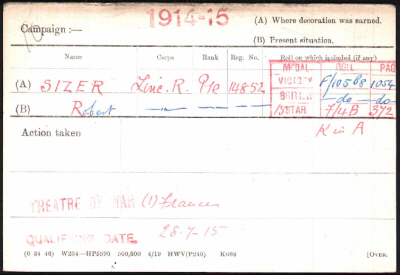 1914-15
Campaign :— (A) Where decoration was earned.
(B) Present situation.
Name Corps Rank Reg. No. Roll on which included (if any)
MEDAL ROLL PAGE
(A) SIZER Linc. R. Pte 14852 VICTORY F/105B8 1054
(B) Robert —"— —"— BRITISH —do— —do—
15 STAR F/4B 372
Action taken K in A
THEATRE OF WAR (1) France
QUALIFYING DATE. 28-7-15
(6 34 46) W234—HP5590 500,000 4/19 HWV(P240) K608 [Over.